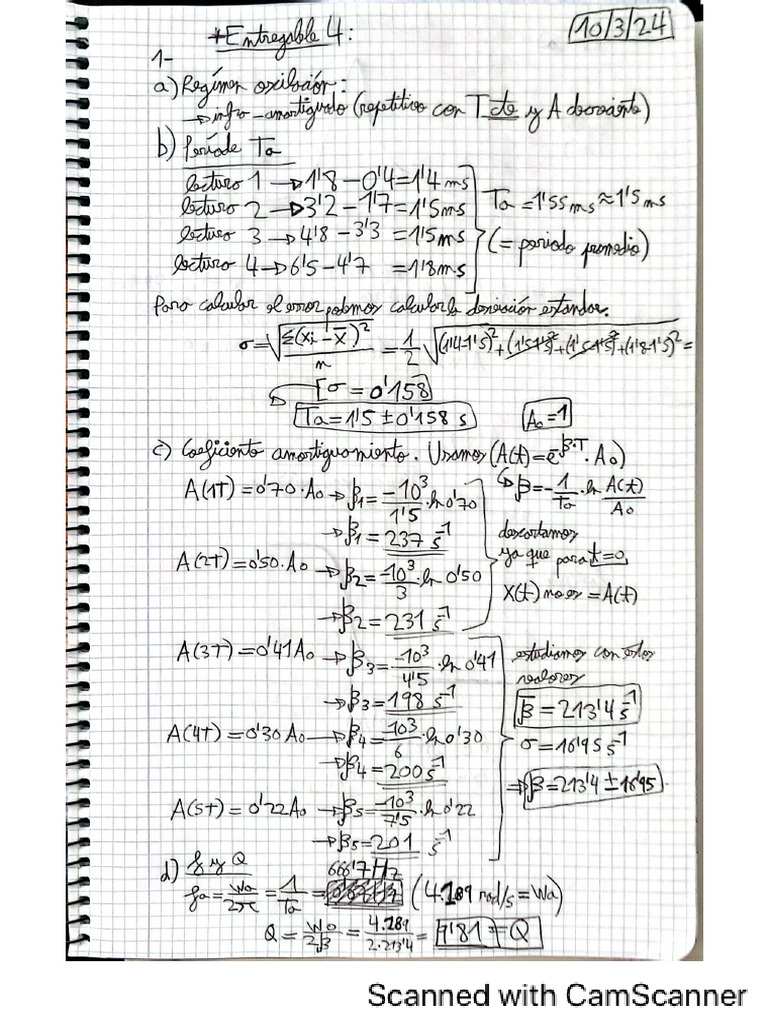 *Entregable 4:
10/3/24
1-
a) Regímen oxilación:
→ infra-amortiguado (repetitivo con T cte y A decreciente)
b) Període Ta
lectura 1 → 1'8 - 0'4 = 1'4 ms
lectura 2 → 3'2 - 1'7 = 1'5 ms
lectura 3 → 4'8 - 3'3 = 1'5 ms
lectura 4 → 6'5 - 4'7 = 1'8 ms
Ta = 1'55 ms ≈ 1'5 ms
(= periodo promedio)
Para calcular el error podemos calcular la desviación estandar.
σ = √(Σ(xi - x̄)² / n) = 1/2 √((1'4-1'5)² + (1'5-1'5)² + (1'5-1'5)² + (1'8-1'5)²) =
[σ = 0'158]
Ta = 1'5 ± 0'158 s
A₀ = 1
c) Coeficiente amortiguamiento. Usamos (A(t) = e^-β·T · A₀)
↳ β = - 1/Ta · ln A(t)/A₀
A(1T) = 0'70·A₀ → β₁ = -10³/1'5 · ln 0'70
→ β₁ = 237 s⁻¹
A(2T) = 0'50·A₀ → β₂ = -10³/3 · ln 0'50
→ β₂ = 231 s⁻¹
descartamos
ya que para t = 0,
X(t) no es = A(t)
A(3T) = 0'41 A₀ → β₃ = -10³/4'5 · ln 0'41
→ β₃ = 198 s⁻¹
A(4T) = 0'30 A₀ → β₄ = -10³/6 · ln 0'30
→ β₄ = 200 s⁻¹
A(5T) = 0'22 A₀ → β₅ = -10³/7'5 · ln 0'22
→ β₅ = 201 s⁻¹
estudiamos con estos
valores
β̄ = 213'4 s⁻¹
σ = 16'95 s⁻¹
⇒ β = 213'4 ± 16'95
d) f y Q
666'7 Hz
fa = Wa/2π = 1/Ta = (4.189 rad/s = Wa)
Q = W₀/2β = 4.189/2·213'4 = 9'81 = Q
Scanned with CamScanner